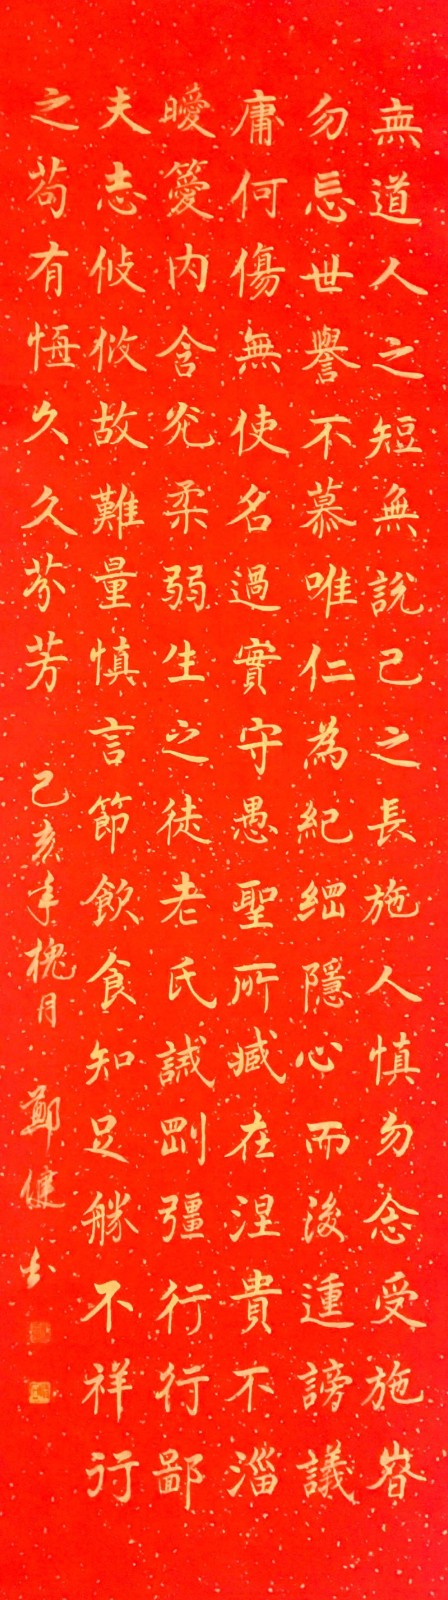 無道人之短無説己之長施人慎勿念受施眘
勿忘世譽不慕唯仁為紀綱隱心而後運謗議
庸何傷無使名過實守愚聖所臧在涅貴不淄
曖曖内含光柔弱生之徒老氏誡剛彊行行鄙
夫志悠悠故難量慎言節飲食知足勝不祥行
之苟有恆久久芬芳
己亥年槐月
鄭健書